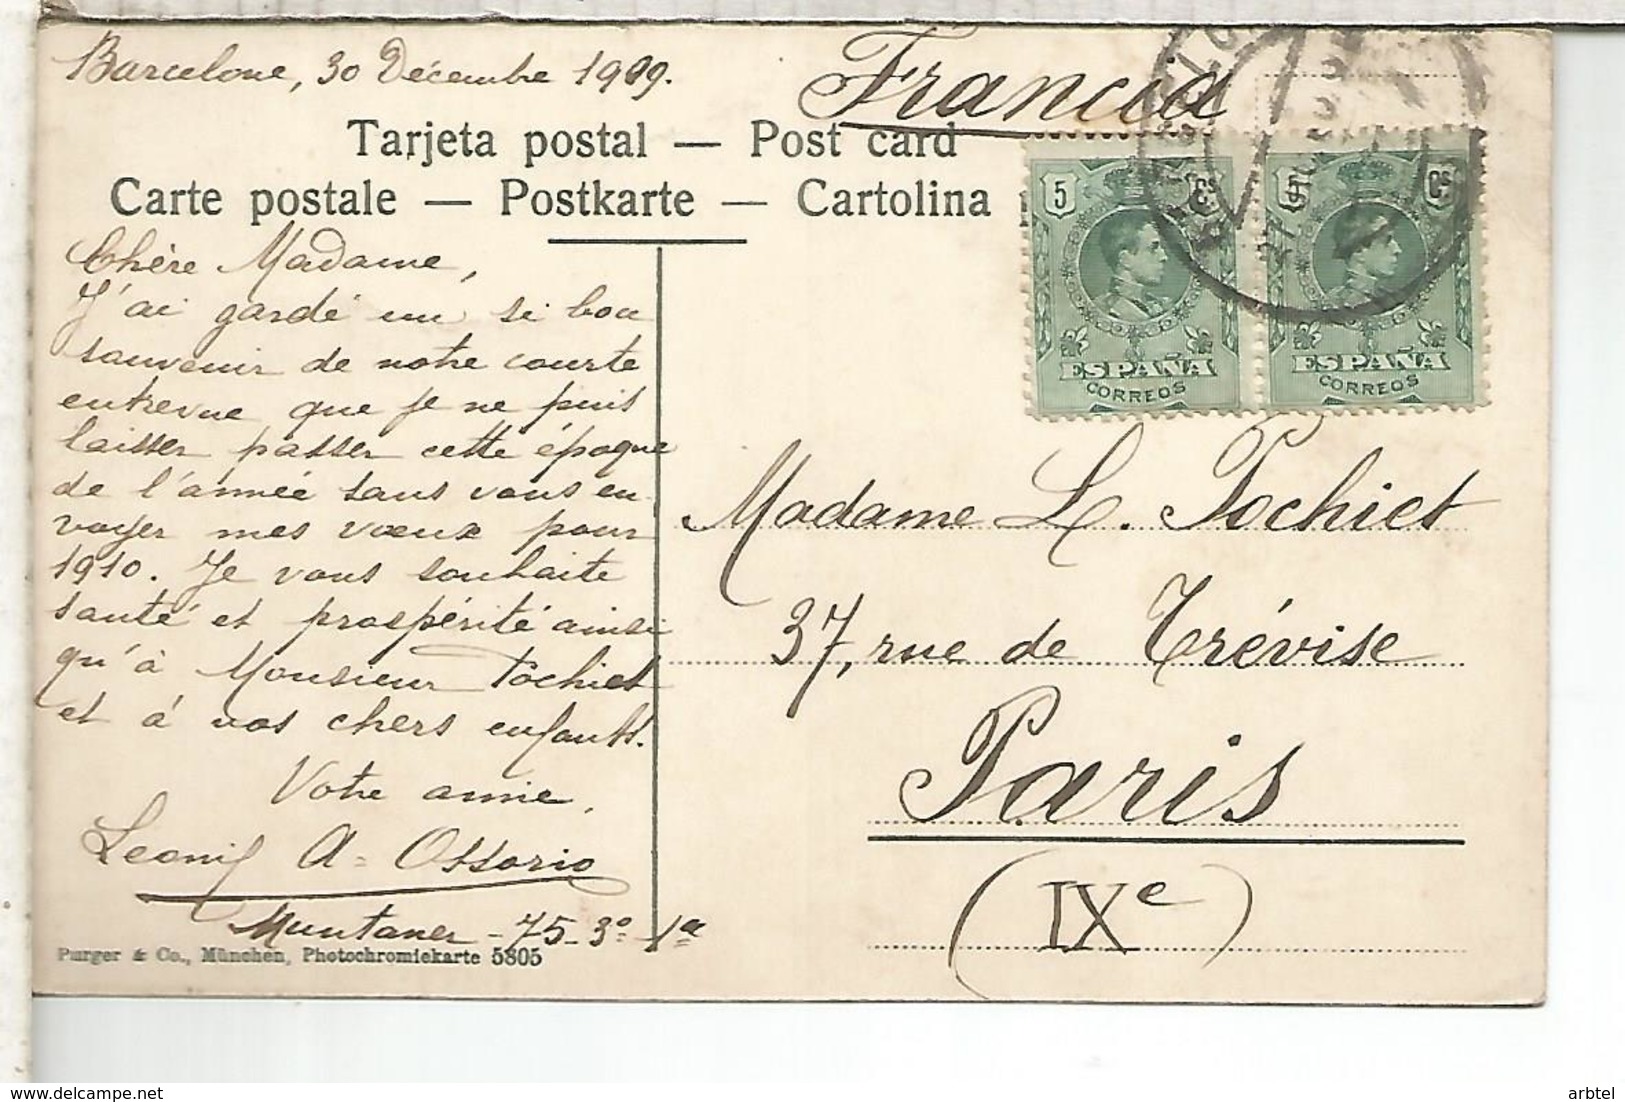 Barcelone, 30 Décembre 1909.
Francia
Tarjeta postal — Post card
Carte postale — Postkarte — Cartolina
5 Cs
Cs
ESPAÑA
CORREOS
ESPAÑA
CORREOS
Chère Madame,
J'ai gardé un si bon
souvenir de notre courte
entrevue que je ne puis
laisser passer cette époque
de l'année sans vous en-
voyer mes vœux pour
1910. Je vous souhaite
santé et prospérité ainsi
qu'à Monsieur Pochiet
et à vos chers enfants.
Votre amie,
A= Ossorio
Muntaner - 75 - 3º - 1ª
Purger & Co., München, Photochromiekarte 5805
Madame L. Pochiet
37, rue de Trévise
Paris
(IXe)
arbtel